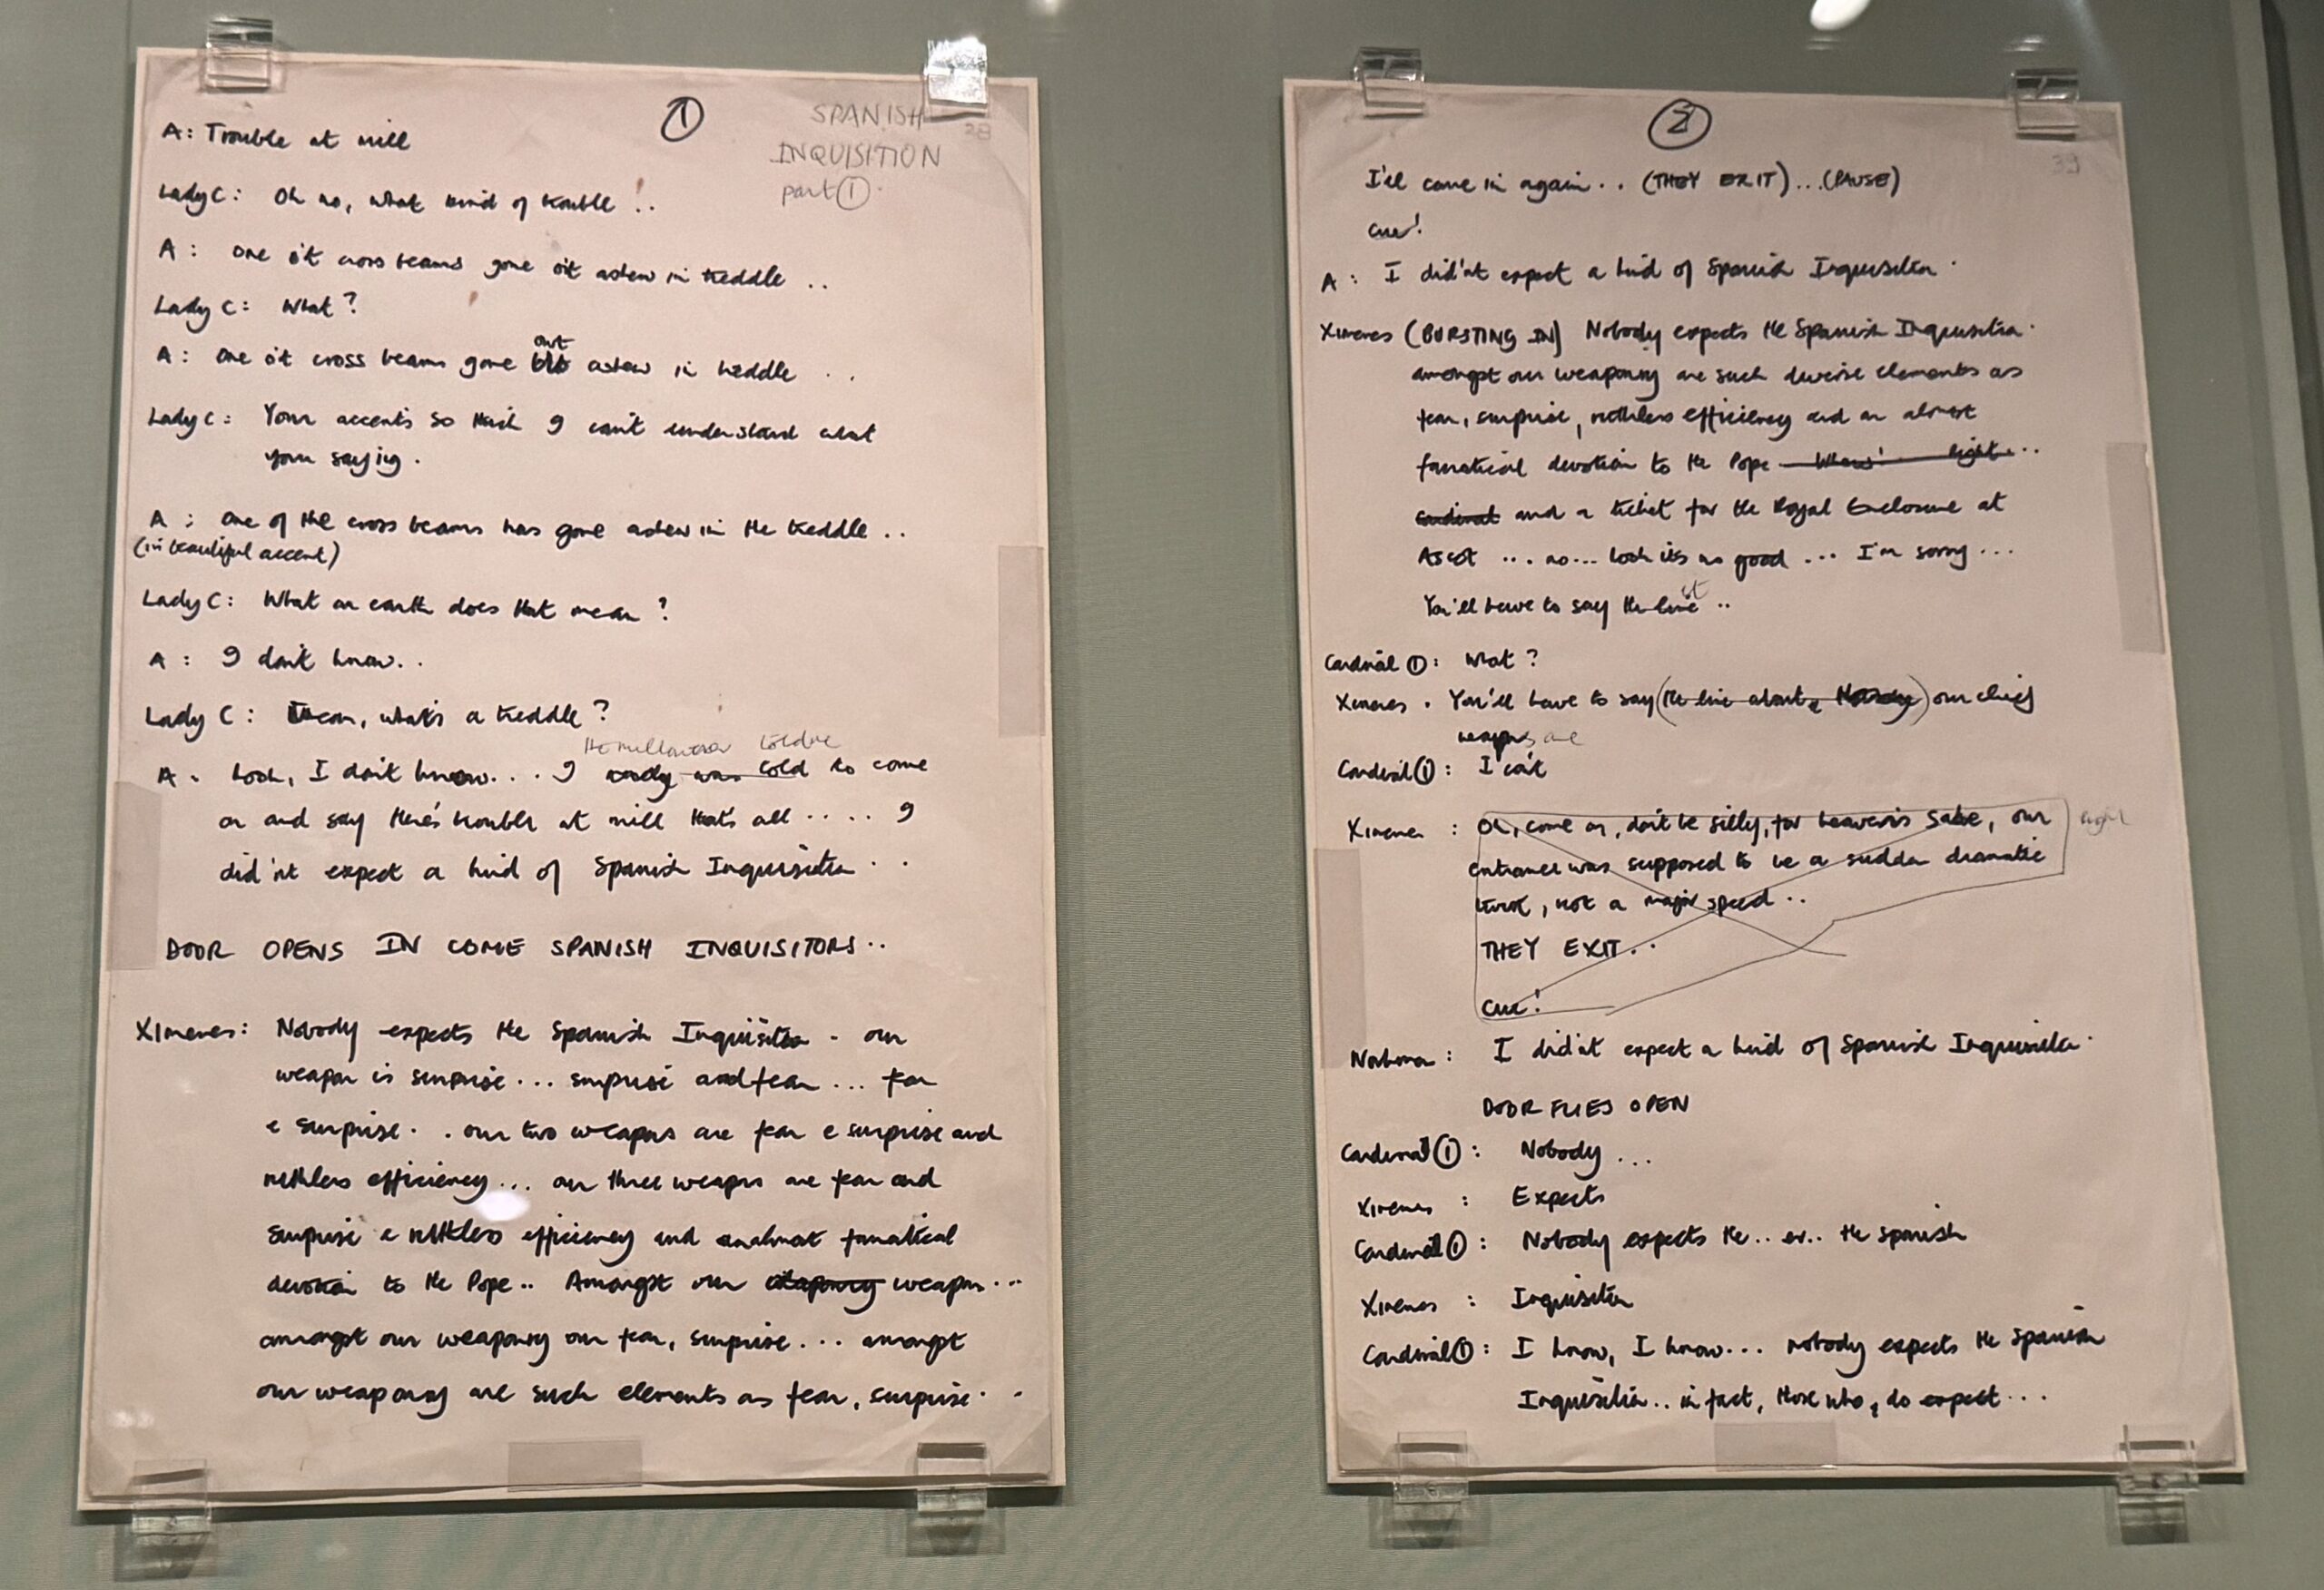 ①
SPANISH
28
INQUISITION
part ①
A: Trouble at mill
Lady C: Oh no, what kind of trouble!..
A: one o't cross beams gone o't askew in treddle ..
Lady C: What?
out
A: one o't cross beams gone askew in treddle ..
Lady C: Your accents so thick I can't understand what
your saying.
A: one of the cross beams has gone askew in the treddle ..
(in beautiful accent)
Lady C: What on earth does that mean?
A: I don't know..
Lady C: I mean, what's a treddle?
the mill owner told me
A: Look, I don't know... I was told to come
on and say there's trouble at mill that's all .... I
did'nt expect a kind of Spanish Inquisition ..
DOOR OPENS IN COME SPANISH INQUISITORS..
Ximenes: Nobody expects the Spanish Inquisition - our
weapon is surprise... surprise and fear... fear
e surprise. . our two weapons are fear e surprise and
ruthless efficiency... our three weapons are fear and
surprise e ruthless efficiency and an almost fanatical
devotion to the Pope.. Amongst our weaponry weapons...
amongst our weaponry our fear, surprise... amongst
our weaponry are such elements as fear, surprise. .
②
39
I'll come in again.. (THEY EXIT)...(PAUSE)
Cue!
A: I did'nt expect a kind of Spanish Inquisition.
Ximenes (BURSTING IN) Nobody expects the Spanish Inquisition.
amongst our weaponry are such diverse elements as
fear, surprise, ruthless efficiency and an almost
fanatical devotion to the Pope right...
cardinal and a ticket for the Royal Enclosure at
Ascot ... no... look its no good ... I'm sorry ...
You'll have to say the line ..
Cardinal ①: What?
Ximenes. You'll have to say (the line about Nobody) our chief
weapons are
Cardinal ①: I can't
Ximenes: Oh, come on, don't be silly, for heaven's sake, our
right
entrance was supposed to be a sudden dramatic
, not a major speech..
THEY EXIT..
Cue!
Northerner: I did'nt expect a kind of Spanish Inquisition.
DOOR FLIES OPEN
Cardinal ①: Nobody ...
Ximenes: Expects
Cardinal ①: Nobody expects the.. er.. the Spanish
Ximenes: Inquisition
Cardinal ①: I know, I know... nobody expects the Spanish
Inquisition.. in fact, those who, do expect...